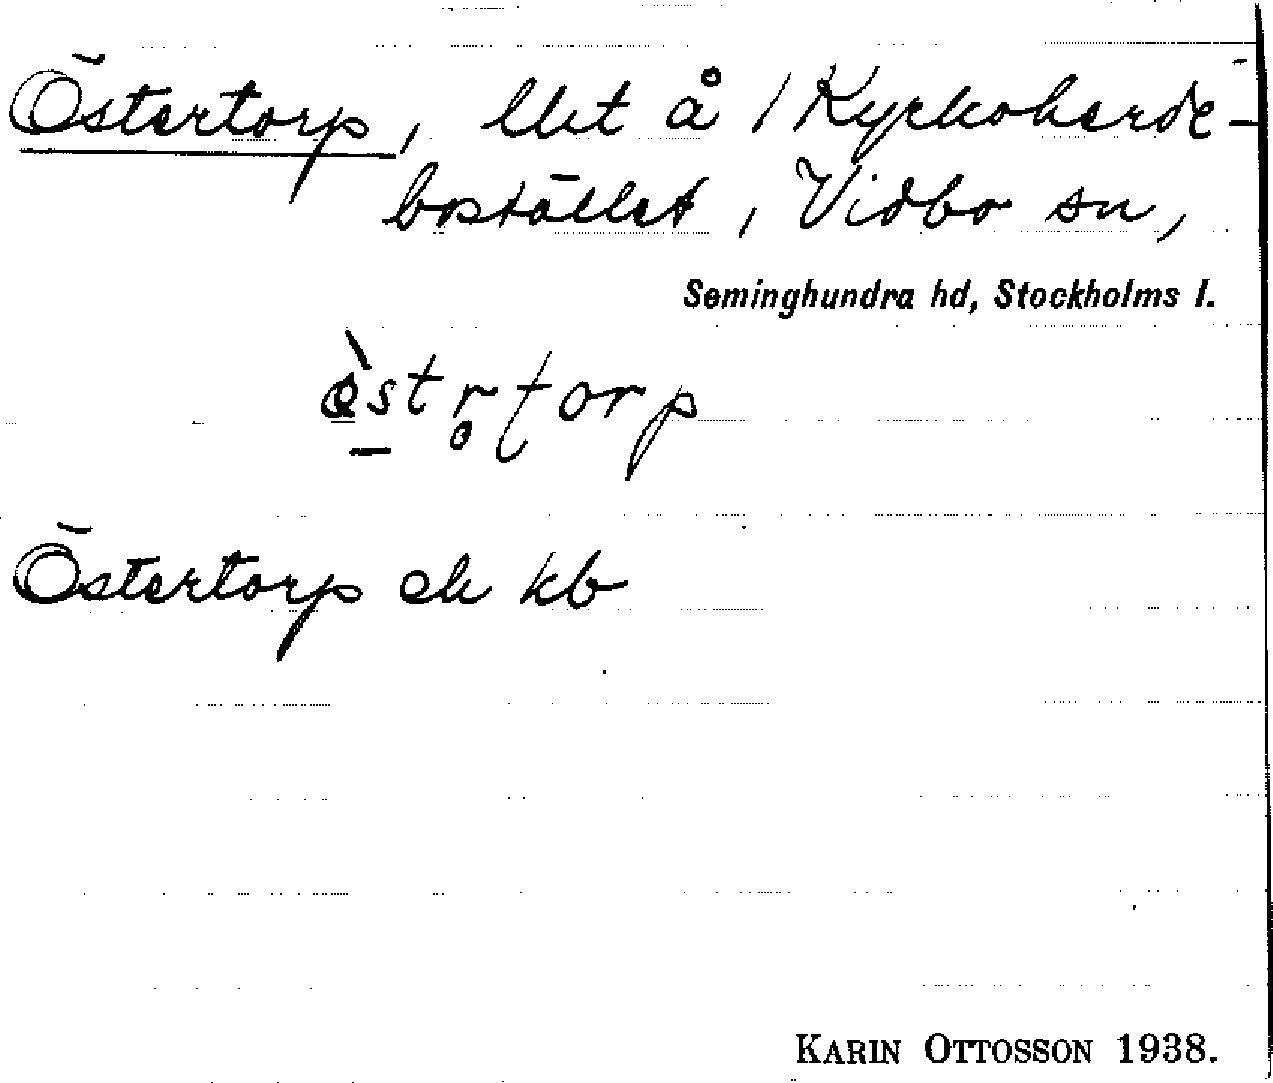 Östertorp, lht å / Kyrkoherde-
bostället, Vidbo sn,
Seminghundra hd, Stockholms l.
Östertorp ek kb
KARIN OTTOSSON 1938.